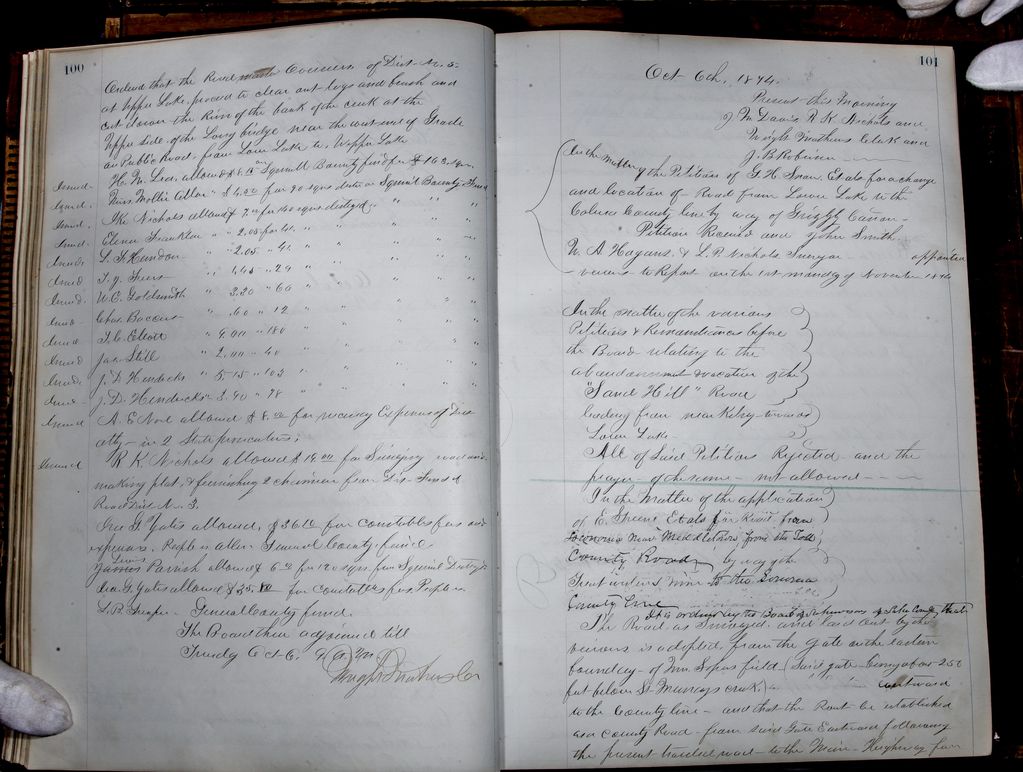 100
Ordered that the Road Overseers of Dist No. 5
at Upper Lake, proceed to clear out logs and brush and
cut down the Rim of the bank of the creek at the
Upper side of the Long bridge near the west end of Grade
on Public Road from Lower Lake to Upper Lake
H. M. Lea, allowed $8.15 Squirrell Bounty fund for 163 sqrs.
Issued Miss Mollie Allen " $4.50 for 90 sqrs dist on Squirrl Bounty Fund
Issued Ike Nichols allowed $7.00 for 140 sqrs distyd " " "
Issued Elenor Frankton " " 2.05 for 41 " " " "
Issued L. F. Hendon " 2.05 " 41 " " " "
Issued T. J. " 1.45 " 29 " " " "
Issued W. C. Goldsmith " 3.30 " 66 " " " "
Issued Chas. " .60 " 12 " " " "
Issued T. C. Elliott " 9.00 " 180 " " " "
Issued Jas. Still " 2.00 " 40 " " " "
Issued J. D. Hendricks " 5.15 " 103 " " " "
Issued J. D. Hendricks " 3.90 " 78 " " " "
Issued A. E. Noel allowed $8.00 for Expenses of Dist
atty - in 2 State prosecutions
Issued R. K. Nichols allowed $19.00 for Surveying road and
making plat, & furnishing 2 chainmen from Dis. Fund
Road Dist No. 3.
Geo. G. Yates allowed, $36.10 for Constables fees and
expenses. People vs Allen General County fund
Parrish allowed 6.00 for 120 sqrs. from Squirrel
Geo. G. Yates allowed $35.10 for Constables fees People vs
L. P. General County fund.
The Board then adjourned till
Tuesday Oct 6. 9 A.M.
Dwight Mathews Clk
101
Oct 6th, 1874.
Present this Morning
J M Davis R K Nichols and
Dwight Mathews Clerk and
J. B. Robinson
In the matter of the Petition of G. H. Swan, Et als for a change
and location of Road from Lower Lake to the
Colusa County line by way of Grizzly Canon -
Petition Received and John Smith
W. A. Hagans & L. P. Nichols Surveyor appointed
viewers to Report on the 1st monday of November 1874
In the matter of the various
Petitions & Remonstrances before
the Board relating to the
abandonment vacation of the
"Sand Hill" Road
leading from near Kelsey towards
Lower Lake
All of Said Petitions Rejected and the
prayer of the same - not allowed
In the Matter of the application
of E. Et als for Road from
near Middletown from the Toll
County Road by way of the
Great western Mine to the Sonoma
County line
It is ordered by the Board of Supervisors of Lake County that
The Road as Surveyed and laid out by the
viewers is adopted, from the gate on the eastern
boundary of Wm. field (Said gate being about 250
feet below St Marys creek) eastward
to the County line - and that the Rout be established
as a County Road - from said Gate Eastward following
the present traveled road - to the Main Highway from